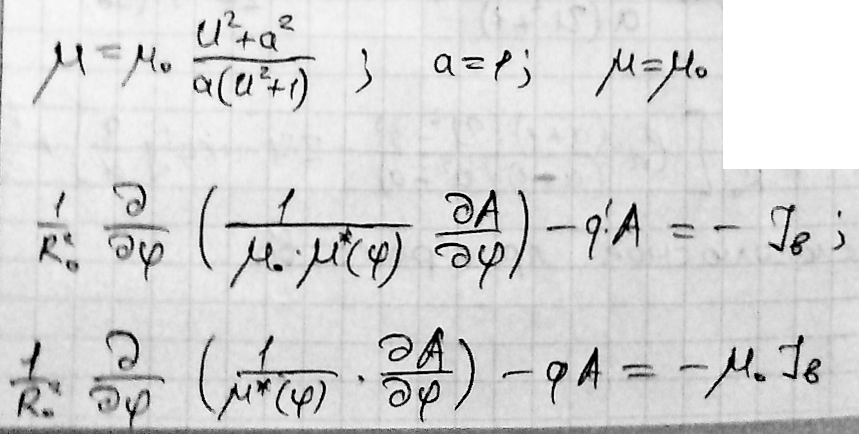 μ = μ₀ (u²+a²)/(a(u²+1)) ; a=1; μ=μ₀
1/R₀² ∂/∂φ (1/(μ₀·μ*(φ)) ∂A/∂φ) − q'A = − J_в ;
1/R₀² ∂/∂φ (1/μ*(φ) · ∂A/∂φ) − qA = − μ₀ J_в